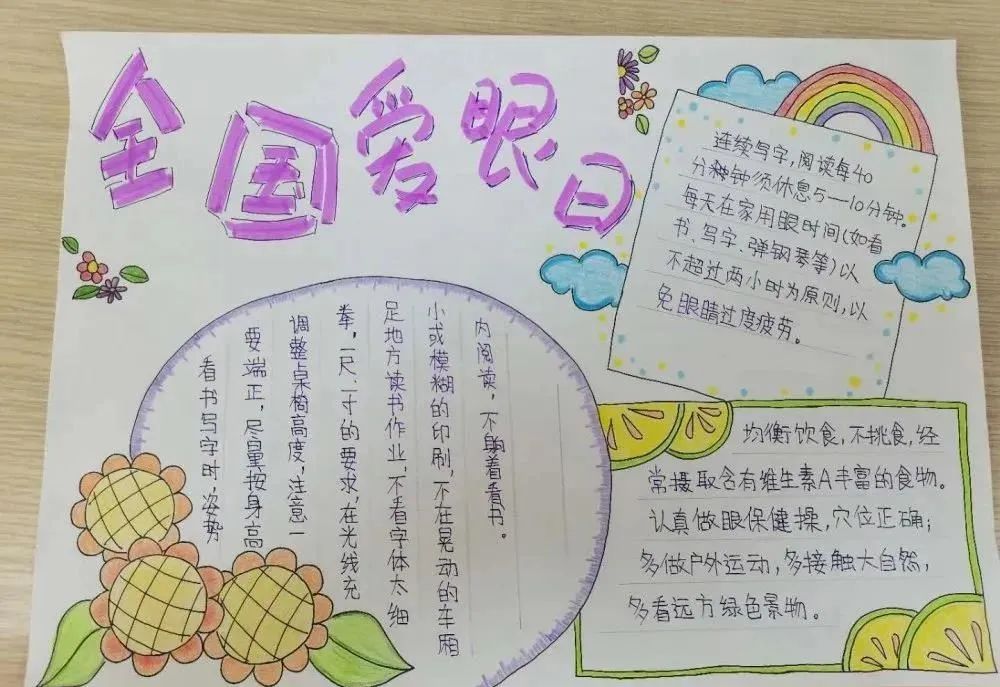 全国爱眼日
连续写字,阅读每40
分钟须休息5—10分钟。
每天在家用眼时间(如看
书、写字、弹钢琴等)以
不超过两小时为原则,以
免眼睛过度疲劳。
看书写字时,姿势
要端正,尽量按身高
调整桌椅高度,注意一
拳,一尺、一寸的要求,在光线充
足地方读书作业、不看字体太细
小或模糊的印刷,不在晃动的车厢
内阅读,不躺着看书。
均衡饮食,不挑食,经
常摄取含有维生素A丰富的食物。
认真做眼保健操,穴位正确;
多做户外运动,多接触大自然,
多看远方绿色景物。